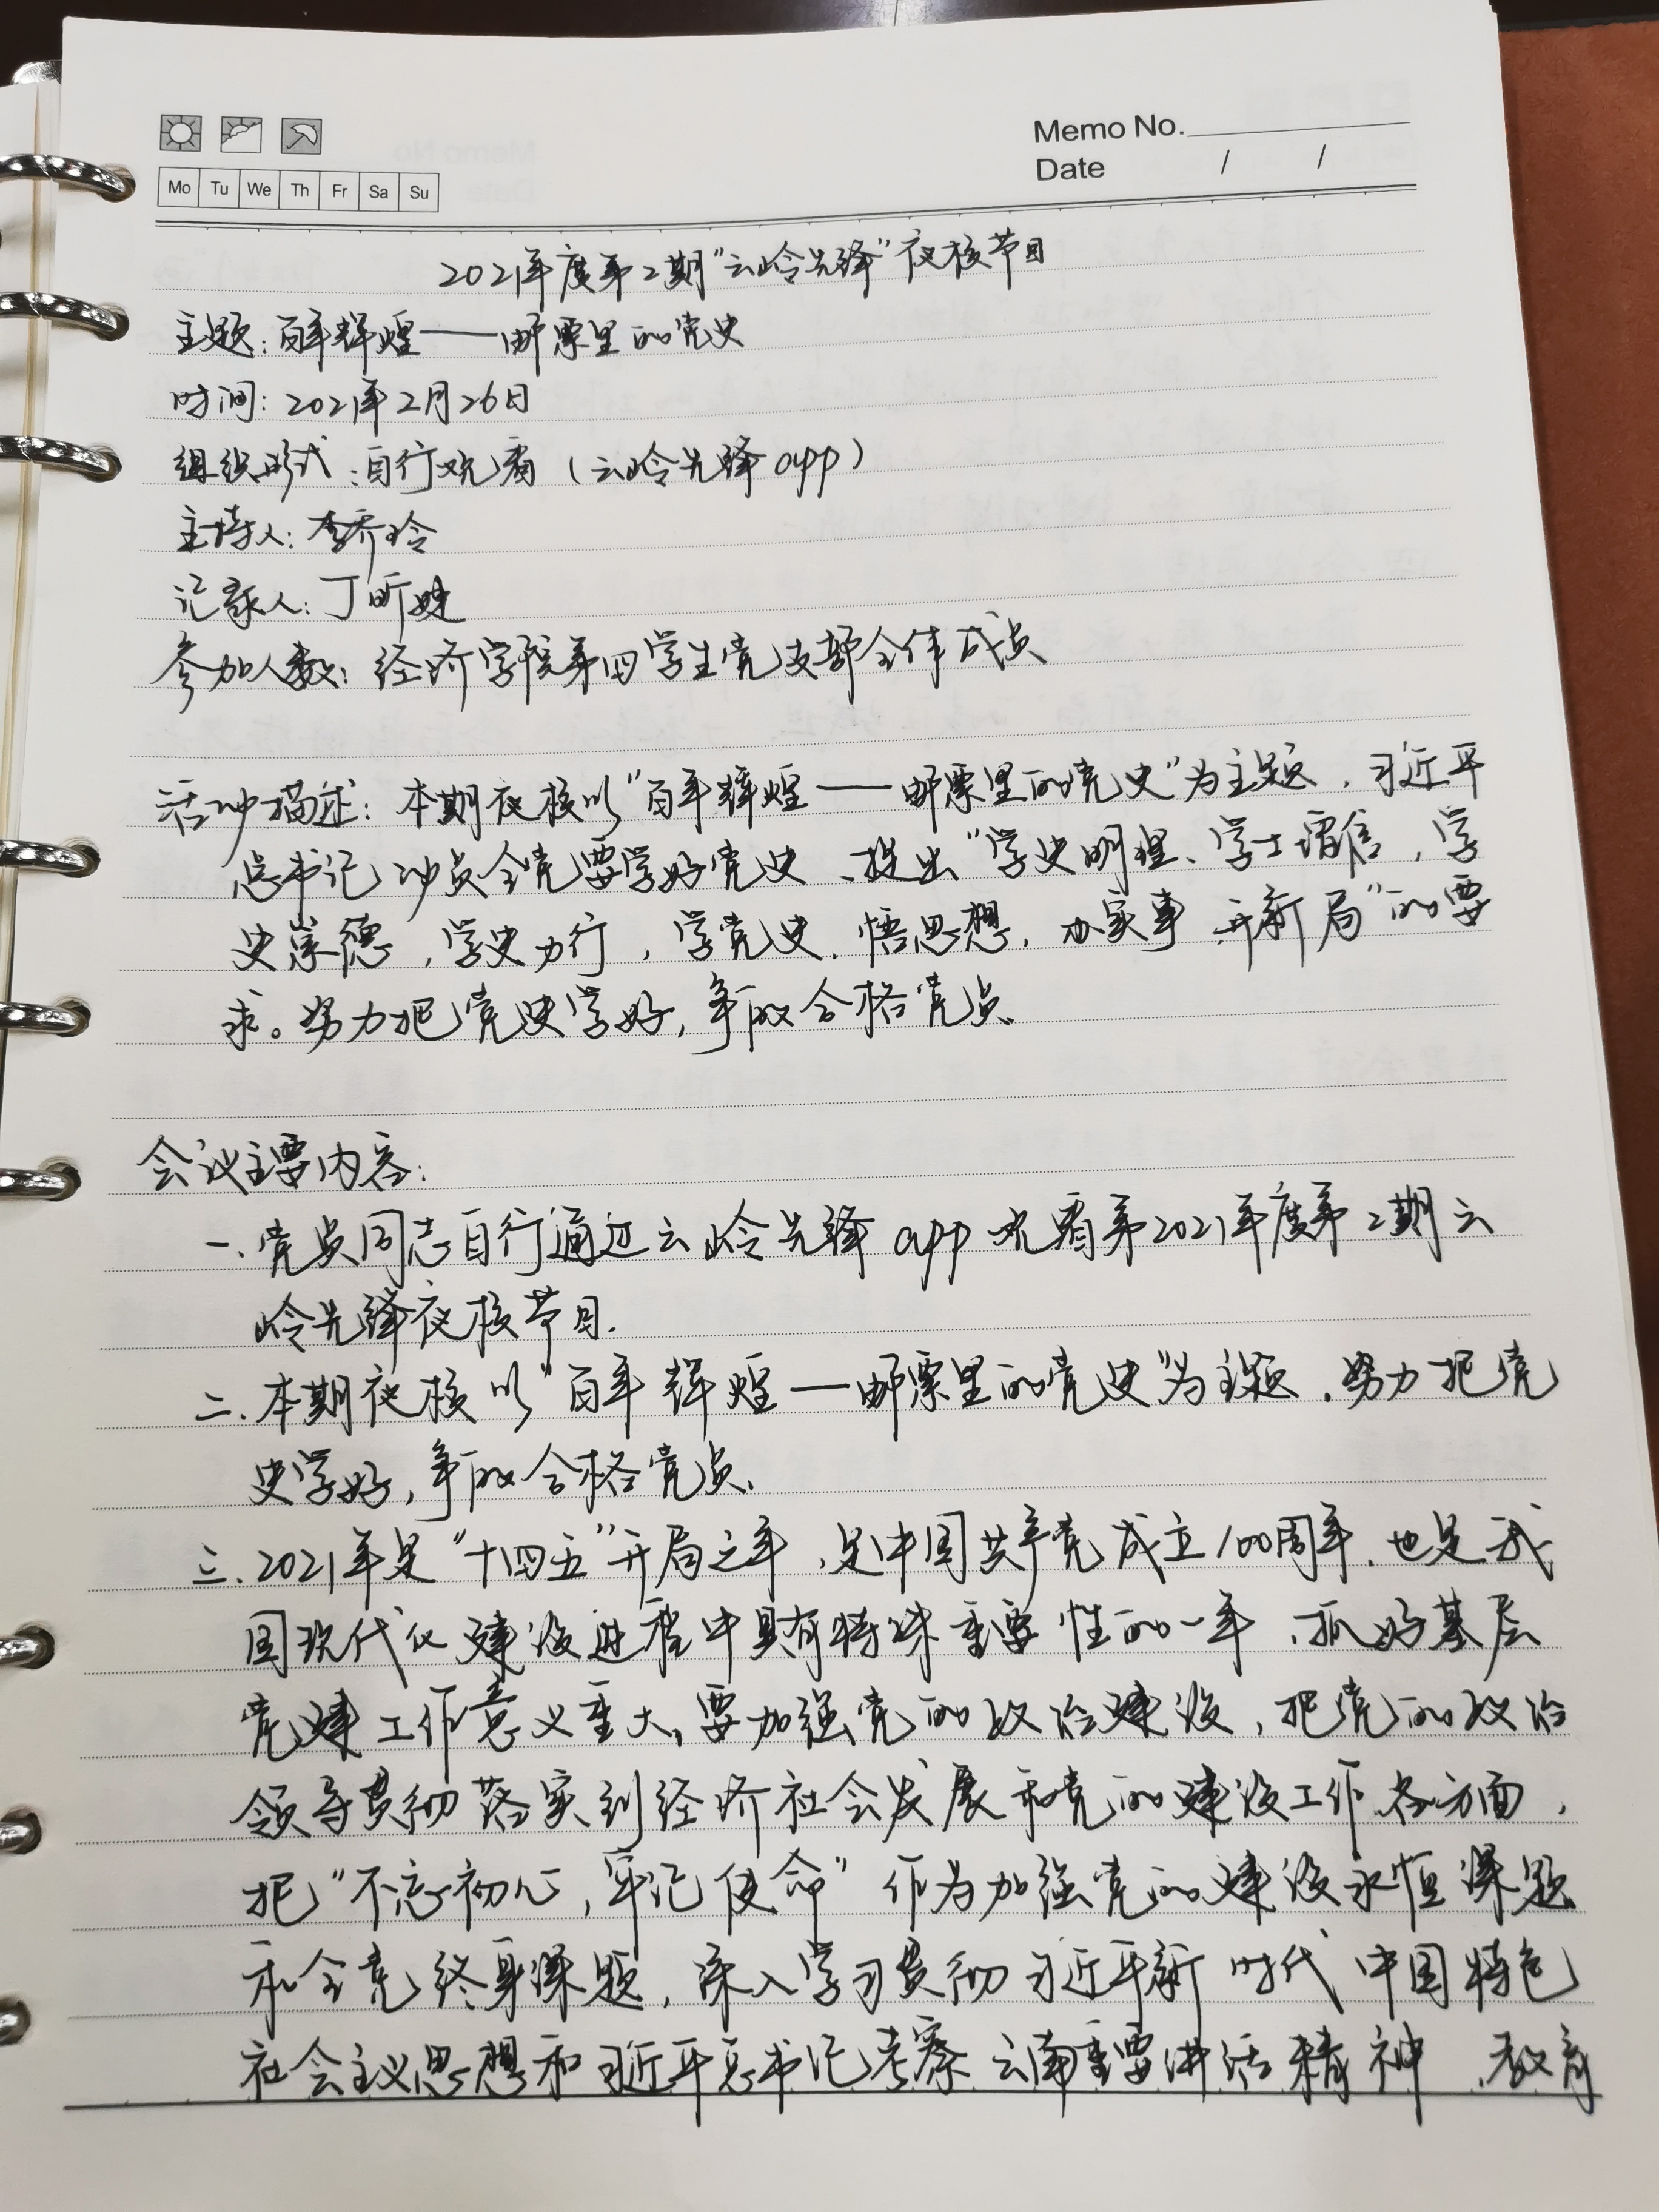 Memo No.
Date / /
Mo Tu We Th Fr Sa Su
2021年度第2期“云岭先锋”夜校节目
主题:百年辉煌——邮票里的党史
时间:2021年2月26日
组织形式:自行观看(云岭先锋app)
主持人:李乔玲
记录人:丁昕婕
参加人数:经济学院第四学生党支部全体成员
活动描述:本期夜校以“百年辉煌——邮票里的党史”为主题,习近平
总书记动员全党要学好党史、提出“学史明理、学士增信,学
史崇德,学史力行,学党史、悟思想,办实事,开新局”的要
求。努力把党史学好,争取合格党员、
会议主要内容:
一、党员同志自行通过云岭先锋app观看第2021年度第2期云
岭先锋夜校节目.
二、本期夜校以“百年辉煌——邮票里的党史”为主题,努力把党
史学好,争取合格党员、
三、2021年是“十四五”开局之年,是中国共产党成立100周年,也是我
国现代化建设进程中具有特殊重要性的一年,抓好基层
党建工作意义重大,要加强党的政治建设,把党的政治
领导贯彻落实到经济社会发展和党的建设工作各方面,
把“不忘初心,牢记使命”作为加强党的建设永恒课题
和全党终身课题,深入学习贯彻习近平新时代中国特色
社会主义思想和习近平总书记考察云南重要讲话精神,教育